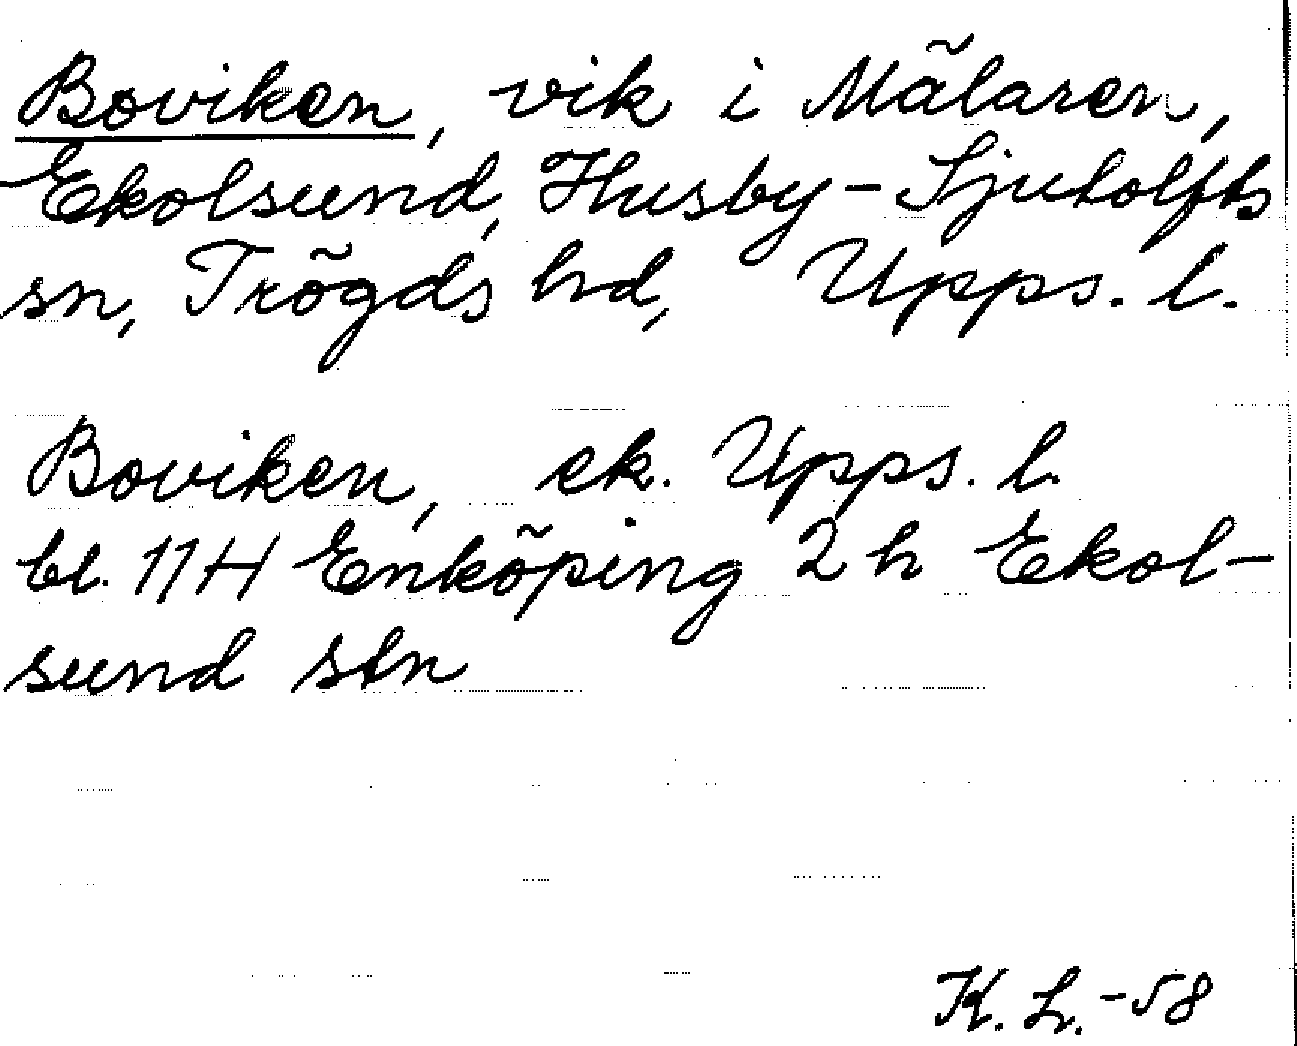 Boviken, vik i Mälaren,
Ekolsund, Husby-Sjutolfts
sn, Trögds hd, Upps. l.
Boviken, ek. Upps. l.
bl. 11H Enköping 2 h Ekol-
sund stn
K. L. -58